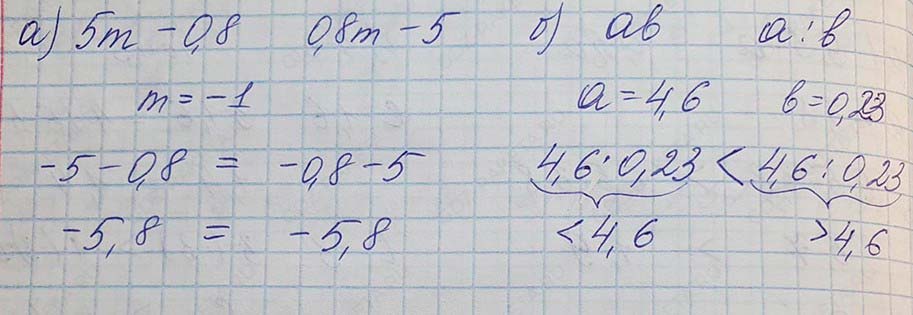 а) 5m - 0,8 0,8m - 5 б) ab a : b
m = -1 a = 4,6 b = 0,23
-5 - 0,8 = -0,8 - 5 4,6 · 0,23 < 4,6 : 0,23
-5,8 = -5,8 < 4,6 > 4,6